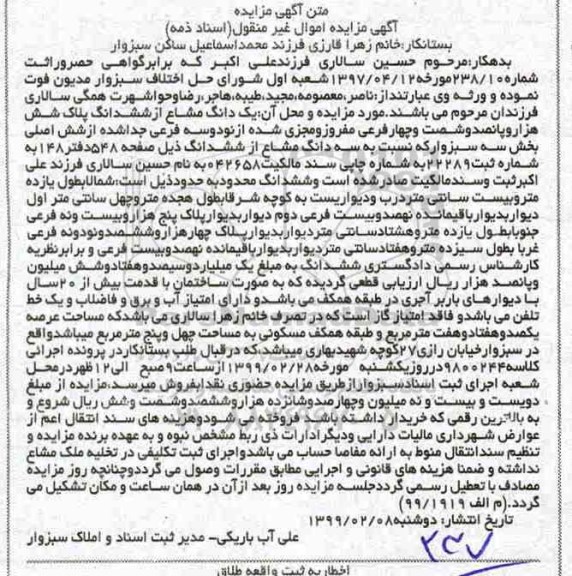 متن آگهی مزایده
آگهی مزایده اموال غیر منقول(اسناد ذمه)
بستانکار:خانم زهرا قارزی فرزند محمداسماعیل ساکن سبزوار
بدهکار:مرحوم حسین سالاری فرزندعلی اکبر که برابرگواهی حصروراثت
شماره۲۳۸/۱۰مورخه۱۳۹۷/۰۴/۱۲شعبه اول شورای حل اختلاف سبزوار مدیون فوت
نموده و ورثه وی عبارتنداز:ناصر،معصومه،مجید،طیبه،هاجر،رضاوحواشهرت همگی سالاری
فرزندان مرحوم می باشند.مورد مزایده و محل آن:یک دانگ مشاع ازششدانگ پلاک شش
هزاروپانصدوشصت وچهارفرعی مفروزومجزی شده ازنودوسه فرعی جداشده ازشش اصلی
بخش سه سبزوارکه نسبت به سه دانگ مشاع از ششدانگ ذیل صفحه ۵۴۸دفتر۱۴۸به
شماره ثبت۲۲۲۸۹به شماره چاپی سند مالکیت۰۴۲۶۵۸به نام حسین سالاری فرزند علی
اکبرثبت وسندمالکیت صادرشده است وششدانگ محدودبه حدودذیل است:شمالابطول یازده
متروبیست سانتی متردرب ودیواریست به کوچه شرقابطول هجده متروچهل سانتی متر اول
دیواربدیوارباقیمانده نهصدوبیست فرعی دوم دیواربدیوارپلاک پنج هزاروبیست ونه فرعی
جنوبابطول یازده متروهشتادسانتی متردیواربدیوارپلاک چهارهزاروششصدونودونه فرعی
غربا بطول سیزده متروهفتادسانتی متردیواربدیوارباقیمانده نهصدوبیست فرعی و برابرنظریه
کارشناس رسمی دادگستری ششدانگ به مبلغ یک میلیاردوسیصدوهفتادوشش میلیون
وپانصد هزار ریال ارزیابی قطعی گردیده که به صورت ساختمان با قدمت بیش از ۲۰سال
با دیوارهای باربر آجری در طبقه همکف می باشدو دارای امتیاز آب و برق و فاضلاب و یک خط
تلفن می باشدو فاقد امتیاز گاز است که در تصرف خانم زهرا سالاری می باشدکه مساحت عرصه
یکصدوهفتادوهفت مترمربع و طبقه همکف مسکونی به مساحت چهل وپنج مترمربع میباشدواقع
در سبزوارخیابان رازی۲۷کوچه شهیدبهاری میباشدکه درقبال طلب بستانکاردر پرونده اجرائی
کلاسه۹۸۰۰۲۴۴درروزیکشنبه مورخه۱۳۹۹/۰۲/۲۸ازساعت۹صبح الی۱۲ظهردرمحل
شعبه اجرای ثبت اسنادسبزوارازطریق مزایده حضوری نقدابفروش میرسد،مزایده از مبلغ
دویست و بیست و نه میلیون وچهارصدوشانزده هزاروششصدوشصت وشش ریال شروع و
به بالاترین رقمی که خریدار داشته باشد فروخته می شودوهزینه های سند انتقال اعم از
عوارض شهرداری مالیات دارایی ودیگرادارات ذی ربط مشخص نبوه و به عهده برنده مزایده و
تنظیم سندانتقال منوط به ارائه مفاصا حساب می باشدواجرای ثبت تکلیفی در تخلیه ملک مشاع
نداشته و ضمنا هزینه های قانونی و اجرایی مطابق مقررات وصول می گرددوچنانچه روز مزایده
مصادف با تعطیل رسمی گرددجلسه مزایده روز بعد ازآن در همان ساعت و مکان تشکیل می
گردد.(م الف ۹۹/۱۹۱۹)
تاریخ انتشار: دوشنبه۱۳۹۹/۰۲/۰۸
علی آب باریکی– مدیر ثبت اسناد و املاک سبزوار
۲۳۷
اخطاریه ثبت واقعه طلاق